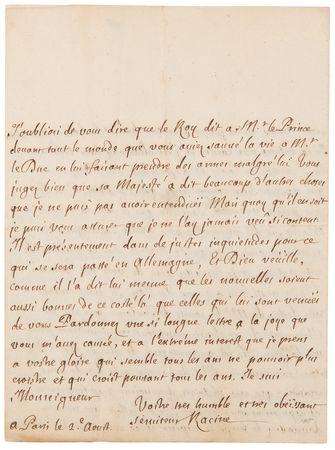 J'oubliois de vous dire que le Roy dit a Mr. le Prince
devant tout le monde que vous aviez sauvé la vie a Mr.
le Duc en lui faisant prendre des armes malgré lui. Vous
jugez bien que sa Majesté a dit beaucoup d'autres choses
que je ne puis pas avoir entendües. Mais quoy qu'il en soit
je puis vous assurer que je ne l'ay jamais veû si content.
Il est presentement dans de justes inquietudes pour ce
qui se sera passé en Allemagne, et Dieu veuille,
comme il l'a dit lui mesme que les nouvelles soient
aussi bonnes de ce costé là que celles qui lui sont venües
de vous. Pardonnez une si longue lettre a la joye que
vous m'avez causée, et a l'extrème interest que je prens
a vostre gloire qui semble tous les ans ne pouvoir plus
croistre et qui croist pourtant tous les ans. Je suis
Monseigneur
Vostre tres humble et tres obeissant
serviteur Racine
a Paris le 2e Aoust.